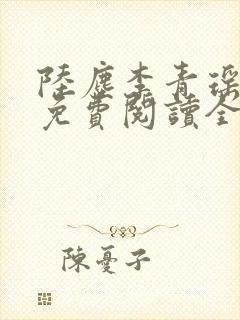 陸塵李青瑤
免費閱讀全
陳憂子